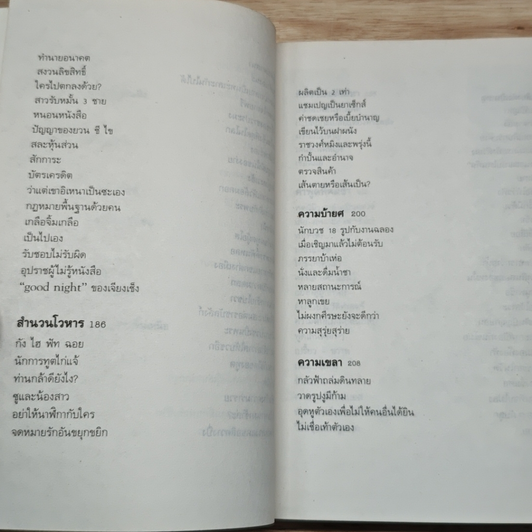 ทำนายอนาคต
สงวนลิขสิทธิ์
ใครไปตกลงด้วย?
สาวรับหมั้น 3 ชาย
หนอนหนังสือ
ปัญญาของยวน ชี ไข
สละหุ้นส่วน
สักการะ
บัตรเครดิต
ว่าแต่เขาอิเหนาเป็นซะเอง
กฎหมายพื้นฐานด้วยคน
เกลือจิ้มเกลือ
เป็นไปเอง
รับชอบไม่รับผิด
อุปราชผู้ไม่รู้หนังสือ
"good night" ของเจียงเช็ง
สำนวนโวหาร 186
กัง ไฮ พัท ฉอย
นักการทูตไก่แจ้
ท่านกล้าดียังไง?
ซูและน้องสาว
อย่าให้นาฬิกากับใคร
จดหมายรักอันขยุกขยิก
ผลิตเป็น 2 เท่า
แชมเปญเป็นยาเซ็กส์
ค่าชดเชยหรือเบี้ยบำนาญ
เขียนไว้บนฝาผนัง
ราชวงศ์หมิงและพรุ่งนี้
กำปั้นและอำนาจ
ตรวจสินค้า
เส้นตายหรือเส้นเป็น?
ความบ้ายศ 200
นักบวช 18 รูปกับงานฉลอง
เมื่อเชิญมาแล้วไม่ต้อนรับ
ภรรยาบ้าเห่อ
นั่งและดื่มน้ำชา
หลายสถานะการณ์
หาลูกเขย
ไม่ผงกศีรษะยังจะดีกว่า
ความสุรุ่ยสุร่าย
ความเขลา 208
กลัวฟ้าถล่มดินทลาย
วาดรูปงูมีก้าม
อุดหูตัวเองเพื่อไม่ให้คนอื่นได้ยิน
ไม่เชื่อเท้าตัวเอง